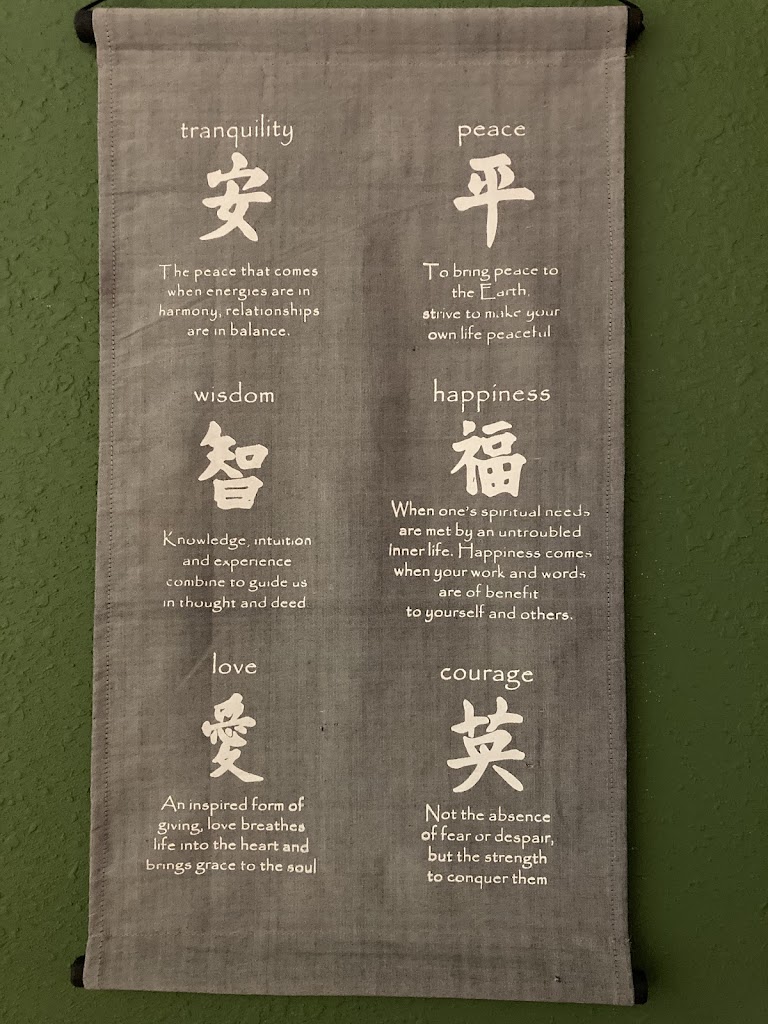 tranquility
安
The peace that comes
when energies are in
harmony, relationships
are in balance.
peace
平
To bring peace to
the Earth,
strive to make your
own life peaceful
wisdom
智
Knowledge, intuition
and experience
combine to guide us
in thought and deed
happiness
福
When one's spiritual needs
are met by an untroubled
Inner life. Happiness comes
when your work and words
are of benefit
to yourself and others.
love
愛
An inspired form of
giving, love breathes
life into the heart and
brings grace to the soul
courage
英
Not the absence
of fear or despair,
but the strength
to conquer them